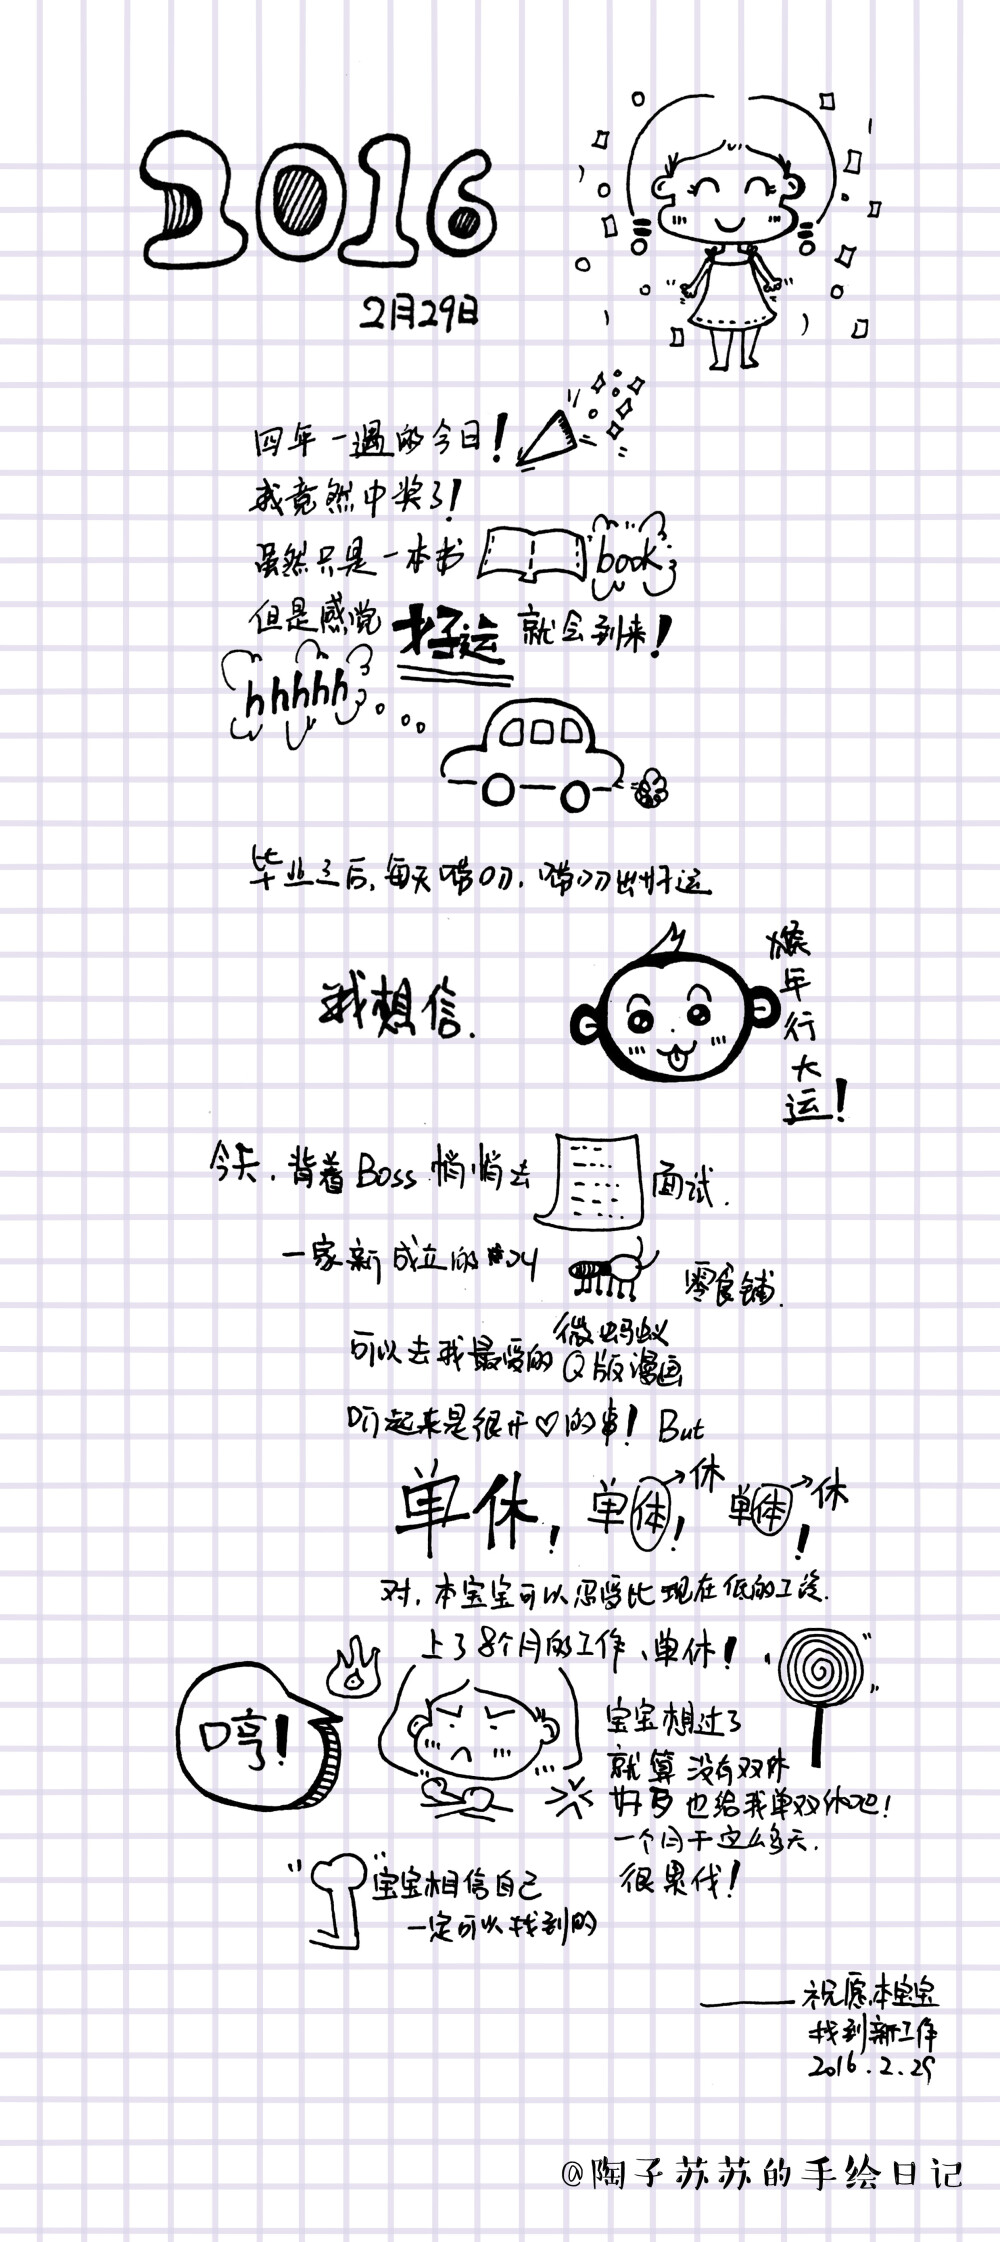 2016
2月29日
四年一遇的今日!
我竟然中奖了!
虽然只是一本书 book
但是感觉好运就会到来!
hhhhh
毕业之后,每天嘚叨,嘚叨出好运
我想信.
猴年行大运!
今天,背着Boss悄悄去 面试.
一家新成立的 零食铺.
微蚂蚁
可以去我最爱的Q版漫画
听起来是很开♡的事! But
单休! 单体→休! 单体→休!
对,本宝宝可以忍受比现在低的工资.
上了8个月的工作、单休!
哼!
宝宝想过了
就算没有双休
好歹也给我单双休吧!
一个月干这么多天.
很累伐!
宝宝相信自己
一定可以找到的
——祝愿本宝宝
找到新工作
2016.2.29
@陶子苏苏的手绘日记